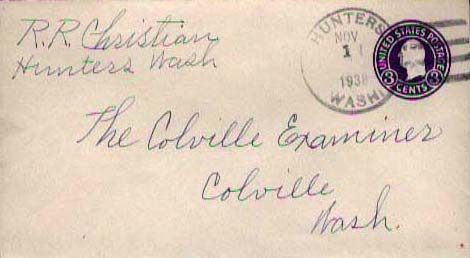 R.R. Christian
Hunters Wash
HUNTERS
NOV
1
1938
WASH.
UNITED STATES POSTAGE
3 CENTS 3
The Colville Examiner
Colville
Wash.